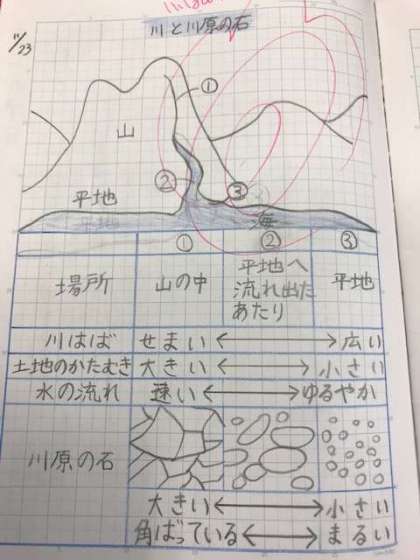 11/23
川と川原の石
①
山
②
③
平地
平地
海
① ② ③
場所 山の中 平地へ流れ出たあたり 平地
川はば せまい ←→ 広い
土地のかたむき 大きい ←→ 小さい
水の流れ 速い ←→ ゆるやか
川原の石
大きい ←→ 小さい
角ばっている ←→ まるい